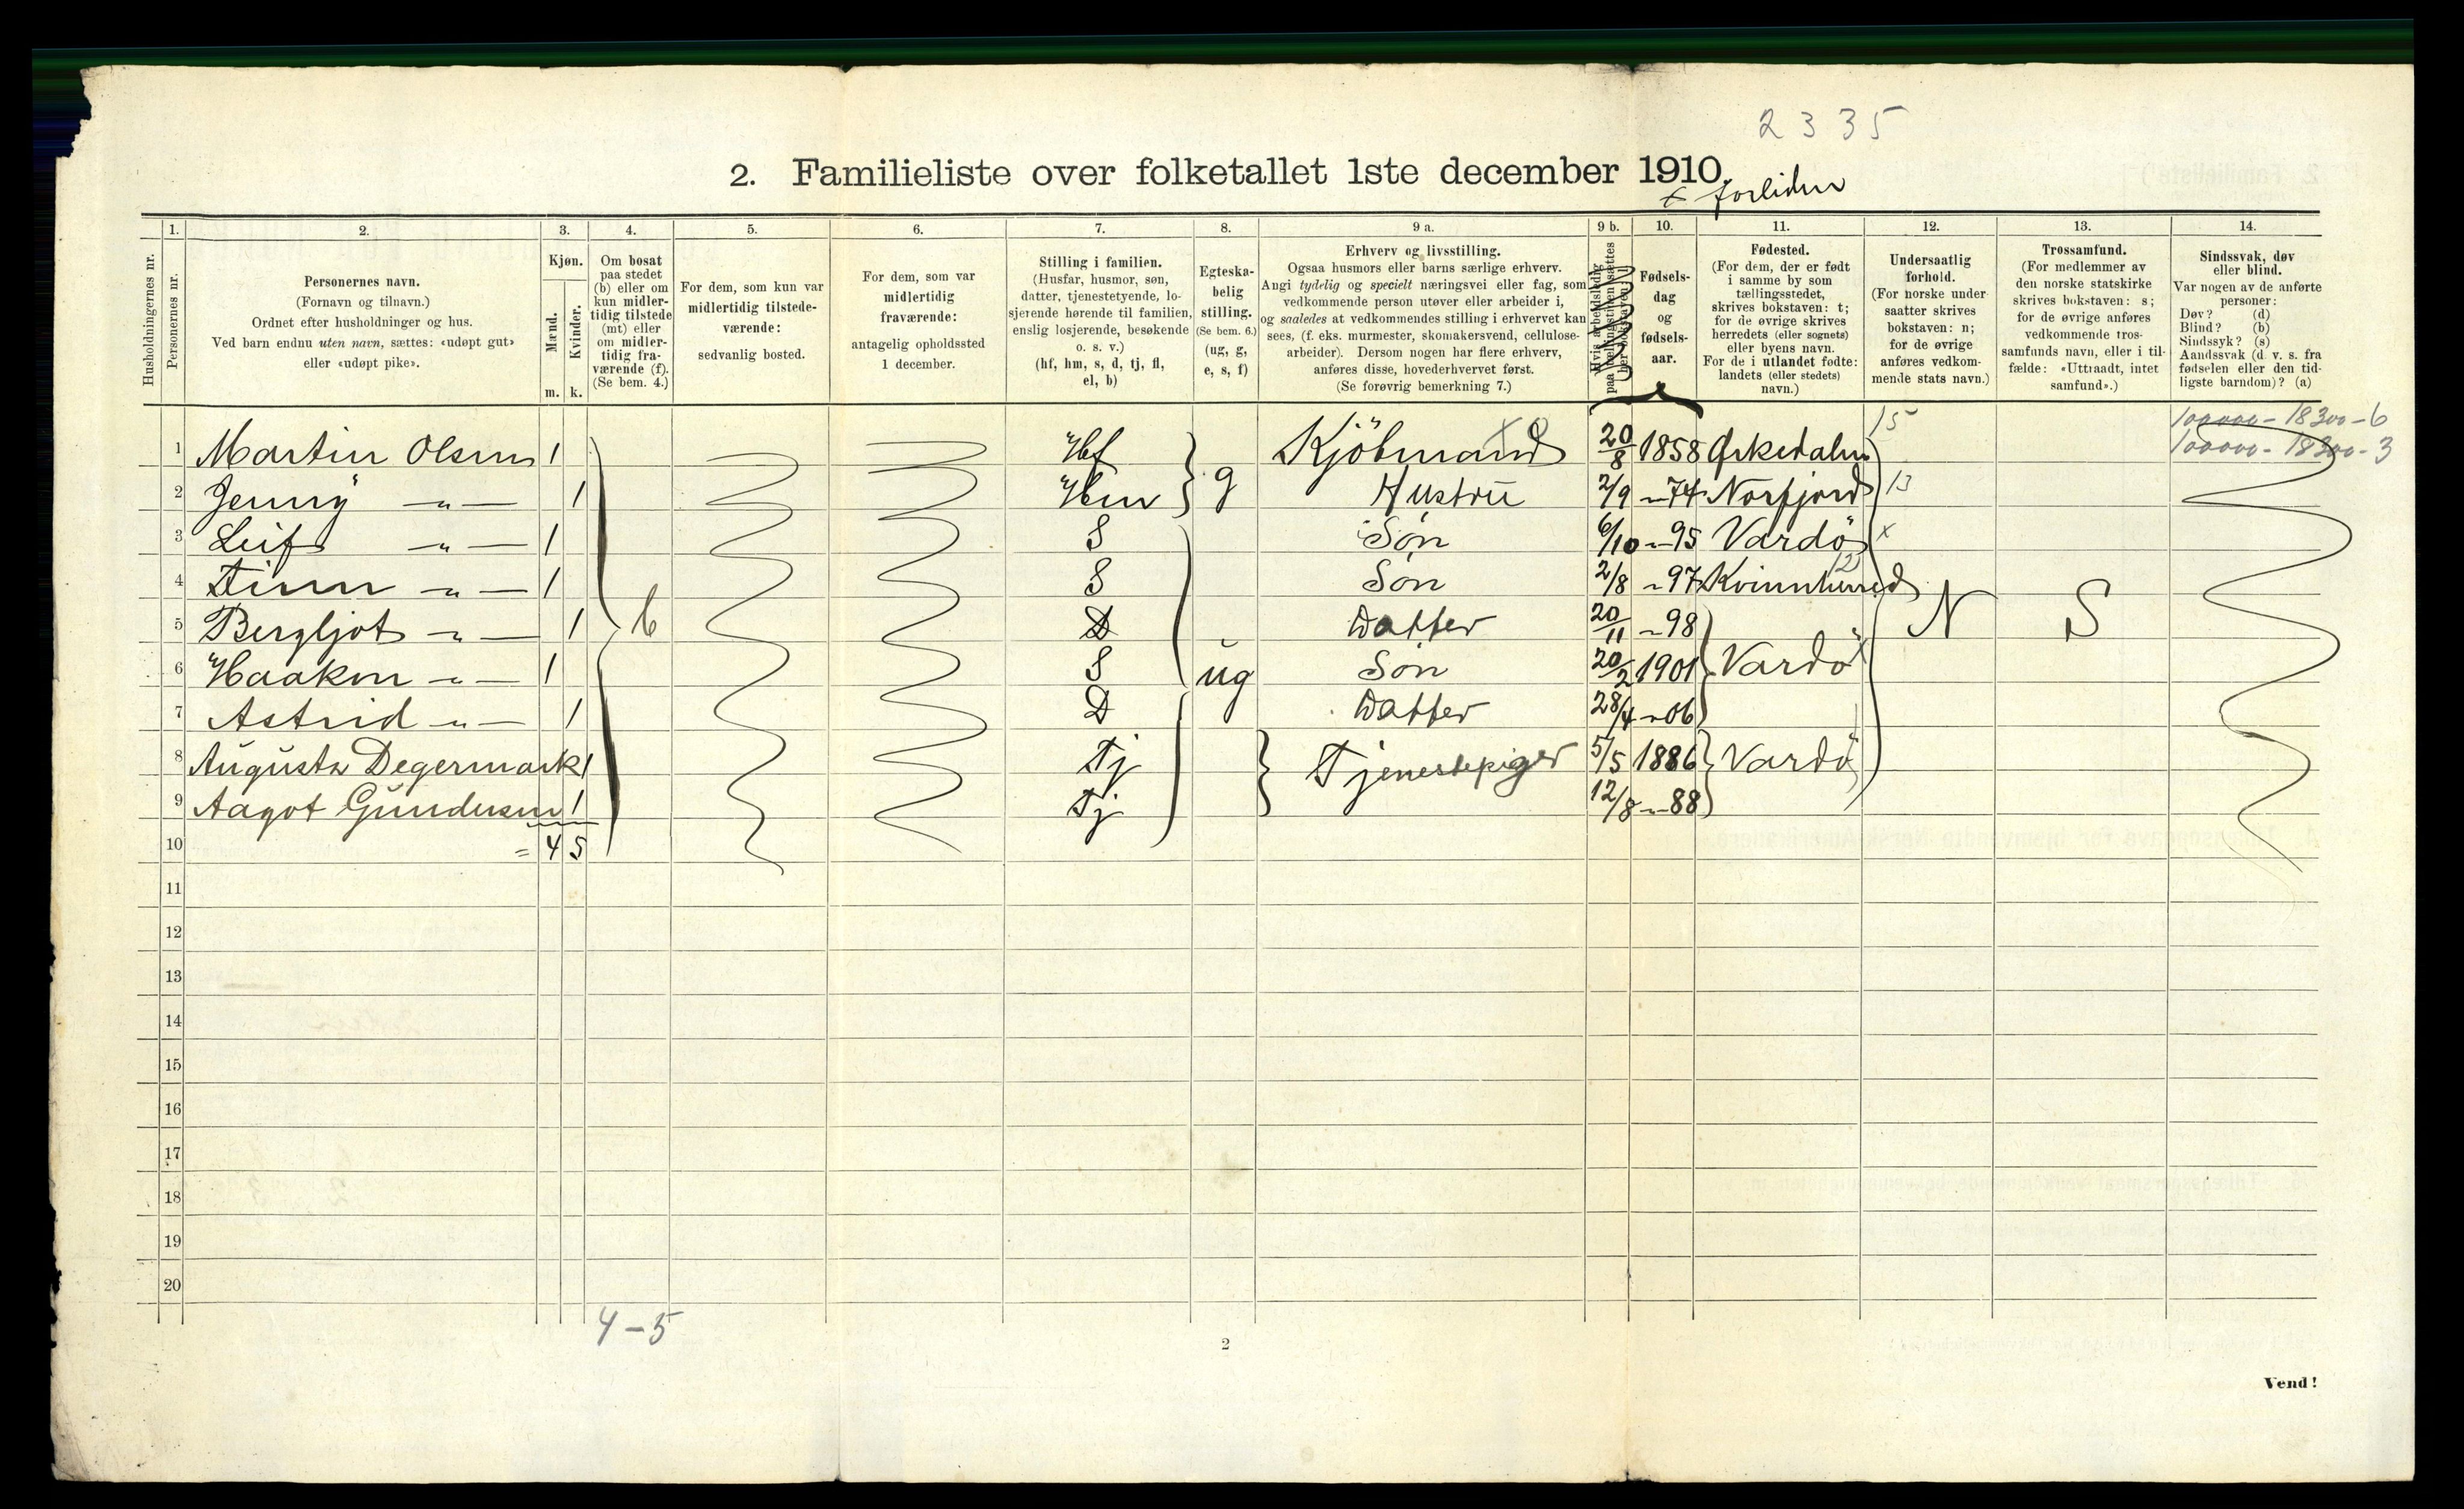 2335
2. Familieliste over folketallet 1ste december 1910.
1. 2. 3. 4. 5. 6. 7. 8. 9 a. 9 b. 10. 11. 12. 13. 14.
Husholdningernes nr.
Personernes nr.
Personernes navn.
(Fornavn og tilnavn.)
Ordnet efter husholdninger og hus.
Ved barn endnu uten navn, sættes: «udøpt gut»
eller «udøpt pike».
Kjøn.
Mænd.
Kvinder.
m. k.
Om bosat
paa stedet
(b) eller om
kun midler-
tidig tilstede
(mt) eller
om midler-
tidig fra-
værende (f).
(Se bem. 4.)
For dem, som kun var
midlertidig tilstede-
værende:
sedvanlig bosted.
For dem, som var
midlertidig
fraværende:
antagelig opholdssted
1 december.
Stilling i familien.
(Husfar, husmor, søn,
datter, tjenestetyende, lo-
sjerende hørende til familien,
enslig losjerende, besøkende
o. s. v.)
(hf, hm, s, d, tj, fl,
el, b)
Egteska-
belig
stilling.
(Se bem. 6.)
(ug, g,
e, s, f)
Erhverv og livsstilling.
Ogsaa husmors eller barns særlige erhverv.
Angi tydelig og specielt næringsvei eller fag, som
vedkommende person utøver eller arbeider i,
og saaledes at vedkommendes stilling i erhvervet kan
sees, (f. eks. murmester, skomakersvend, cellulose-
arbeider). Dersom nogen har flere erhverv,
anføres disse, hovederhvervet først.
(Se forøvrig bemerkning 7.)
Hvis arbeidsledig
paa tællingstiden sættes
Fødsels-
dag
og
fødsels-
aar.
Fødested.
(For dem, der er født
i samme by som
tællingsstedet,
skrives bokstaven: t;
for de øvrige skrives
herredets (eller sognets)
eller byens navn.
For de i utlandet fødte:
landets (eller stedets)
navn.)
Undersaatlig
forhold.
(For norske under
saatter skrives
bokstaven: n;
for de øvrige
anføres vedkom-
mende stats navn.)
Trossamfund.
(For medlemmer av
den norske statskirke
skrives bokstaven: s;
for de øvrige anføres
vedkommende tros-
samfunds navn, eller i til-
fælde: «Uttraadt, intet
samfund».)
Sindssvak, døv
eller blind.
Var nogen av de anførte
personer:
Døv? (d)
Blind? (b)
Sindssyk? (s)
Aandssvak (d. v. s. fra
fødselen eller den tid-
ligste barndom)? (a)
15 100000 - 18300 - 6
1 Martin Olsen 1 Hf Kjöbmand 20/8 1858 Ørkedalen 100000 - 18300 - 3
2 Jenny -"- 1 Hm g Hustru 2/9 "74 Norfjord 13
3 Leif -"- 1 S Søn 6/10 "95 Vardö x
4 Finn -"- 1 S Søn 2/8 "97 Kvinnherred 12
5 Bergljot -"- 1 b D Datter 20/11 "98 N S
6 Haakon -"- 1 S ug Søn 20/2 1901 Vardö
7 Astrid -"- 1 D Datter 28/4 "06
8 Augusta Degermark 1 Tj Tjenestepiger 5/5 1886 Vardö
9 Aagot Gundersen 1 Tj 12/8 "88
10 = 4 5
11
12
13
14
15
16
17
18
19
20
4-5
2
Vend!